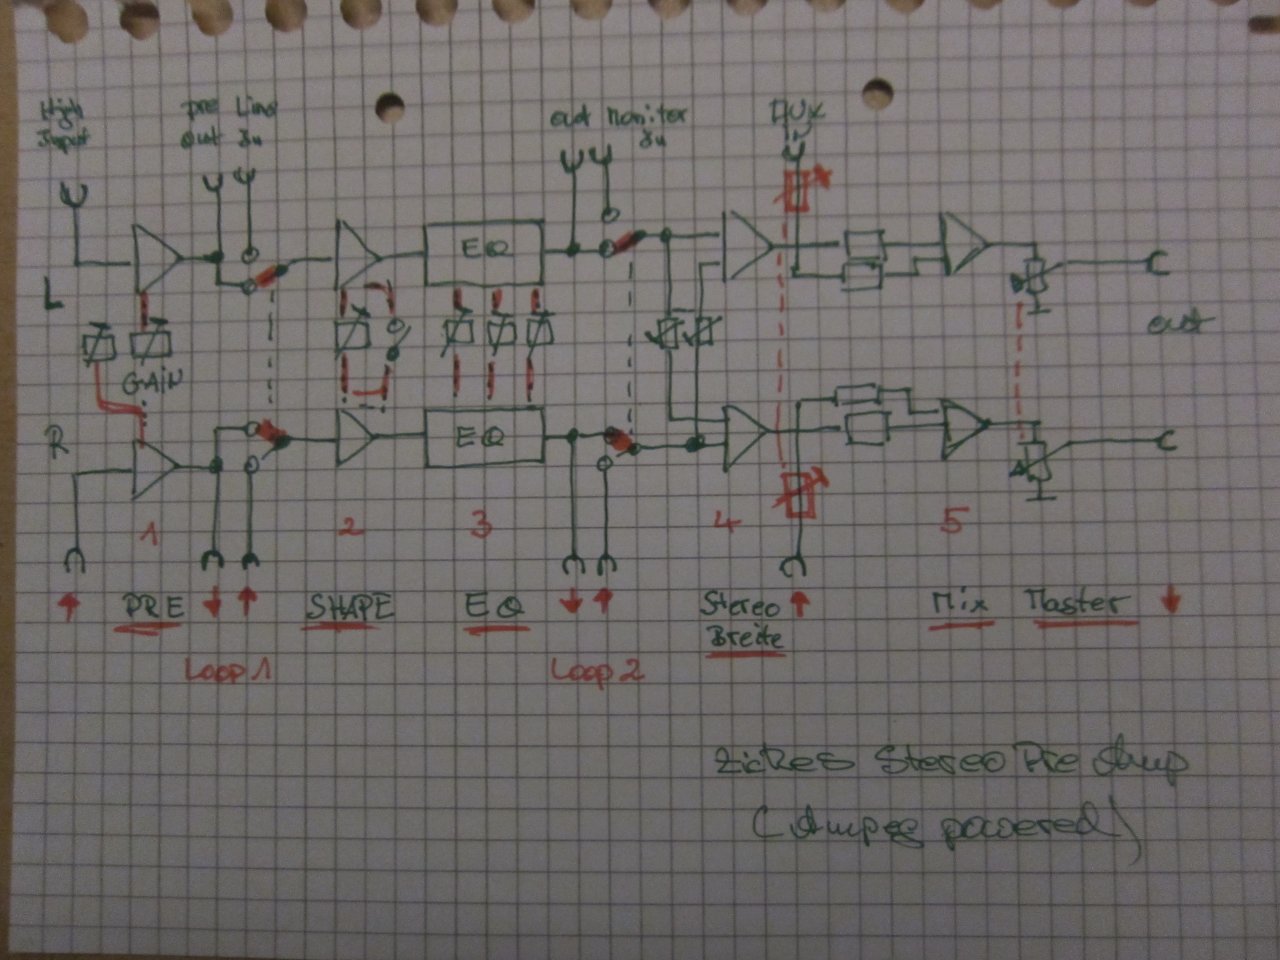 High Pre Line out Monitor AUX
Input Out In In
EQ
L
out
GAIN
R
EQ
1 2 3 4 5
PRE SHAPE EQ Stereo Mix Master
Breite
Loop 1 Loop 2
Zickes Stereo Pre Amp
(Ampeg powered)